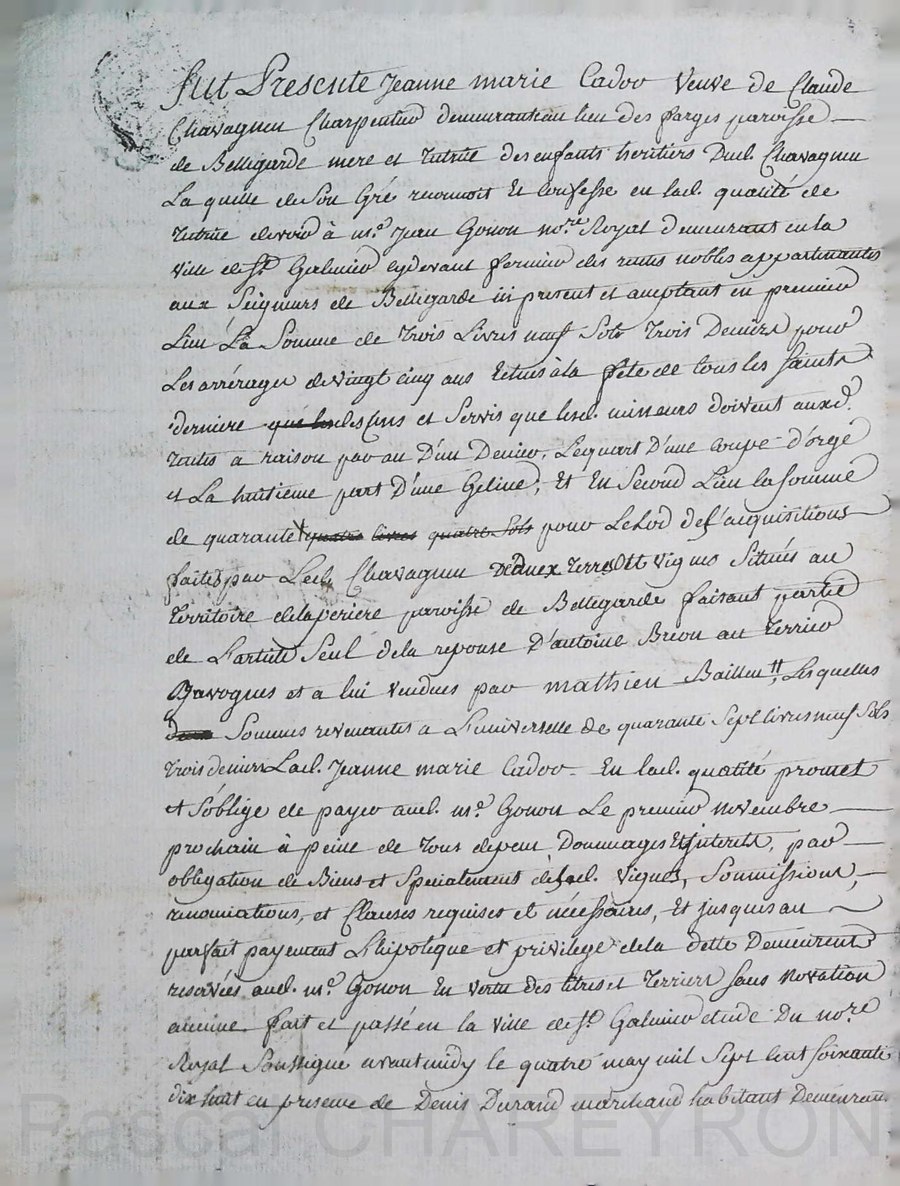 Fut Presente Jeanne marie Cadov veuve de Claude
Chavagneu Charpentier demeurant au lieu des farges paroisse
de Bellegarde mere et Tutrice des enfants heritiers Dud. Chavagneu
La quelle de Son Gré reconnoit Et Confesse en lad. qualité de
Tutrice devoir à m.e Jean Gonon no.re Royal demeurant en la
ville de S.t Galmier cydevant fermier des rentes nobles appartenantes
aux Seigneurs de Bellegarde ici present et aceptant en premier
Lieu La Somme de Trois Livres neuf Sols Trois Deniers pour
Les arrérages de vingt cinq ans Echus à la fête de tous les saints
derniere que les des Cens et Servis que lesd. mineurs doivent auxd.
rentes a raison par an D'un Denier, Lequart D'une Coupe d'orge
et La huitieme part D'une Geline; Et En Second Lieu la somme
de quarante quatre livres quatre Sols pour Le Lod des acquisitions
faites par Led. Chavagneu De deux Terres Et vignes Situés au
Territoire de la periere paroisse de Bellegarde faisant partie
de L'article Seul de la reponse D'antoine Breon au Terrier
Bavognes et a lui vendues par mathieu Bailleu, Les quelles
Sommes revenantes a L'universelle de quarante Sept livres neuf Sols
Trois deniers Lad. Jeanne marie Cadov En lad. qualité promet
et S'oblige de payer aud. m.e Gonon Le premier novembre
prochain à peine de Tous depens Dommages Et interets, par
obligation de Biens et Specialement desd. vignes, Soumissions,
renonciations, et Clauses requises et nécessaires, Et jusques au
parfait payement L'hipoteque et privilege de la dette Demeurent
reservées aud. m.e Gonon En vertu des titres et Terriers sans Novation
aucune. fait et passé en la ville de S.t Galmier etude Du no.re
Royal Soussigné avant midy le quatre may mil Sept Cent soixante
dix huit en presence de Denis Durand marchand habitant Demeurant
Pascal CHAREYRON